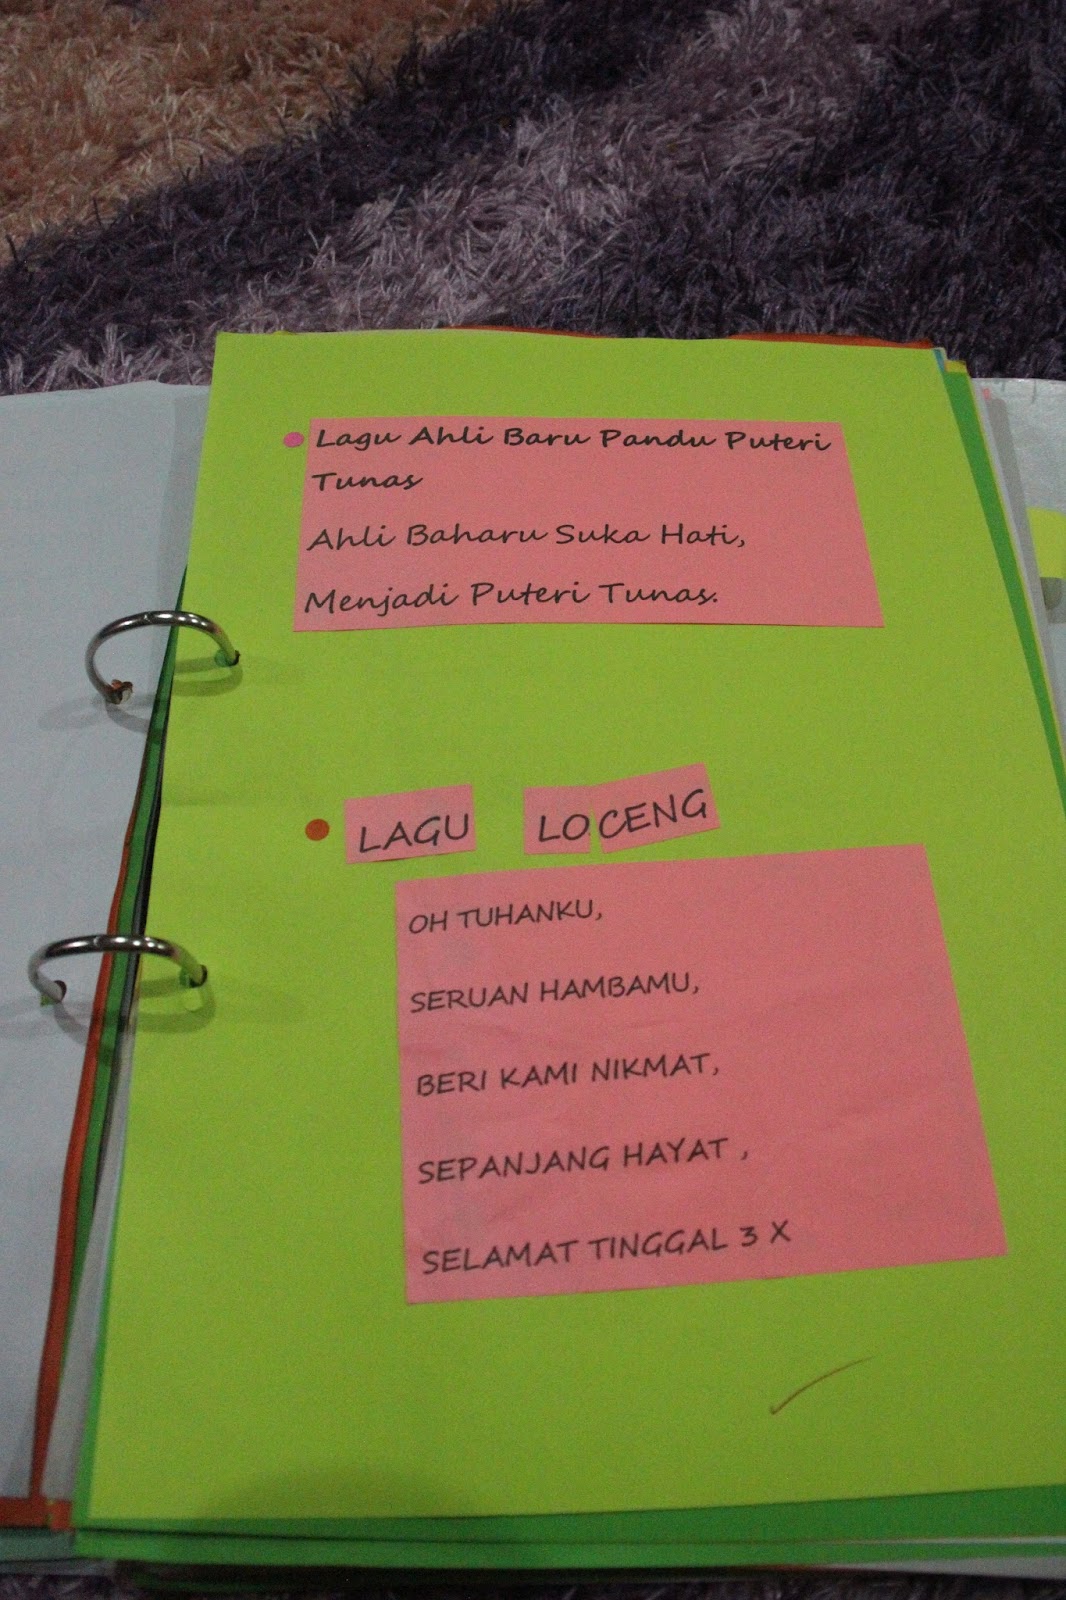 Lagu Ahli Baru Pandu Puteri
Tunas
Ahli Baharu Suka Hati,
Menjadi Puteri Tunas.
LAGU LOCENG
OH TUHANKU,
SERUAN HAMBAMU,
BERI KAMI NIKMAT,
SEPANJANG HAYAT ,
SELAMAT TINGGAL 3 X